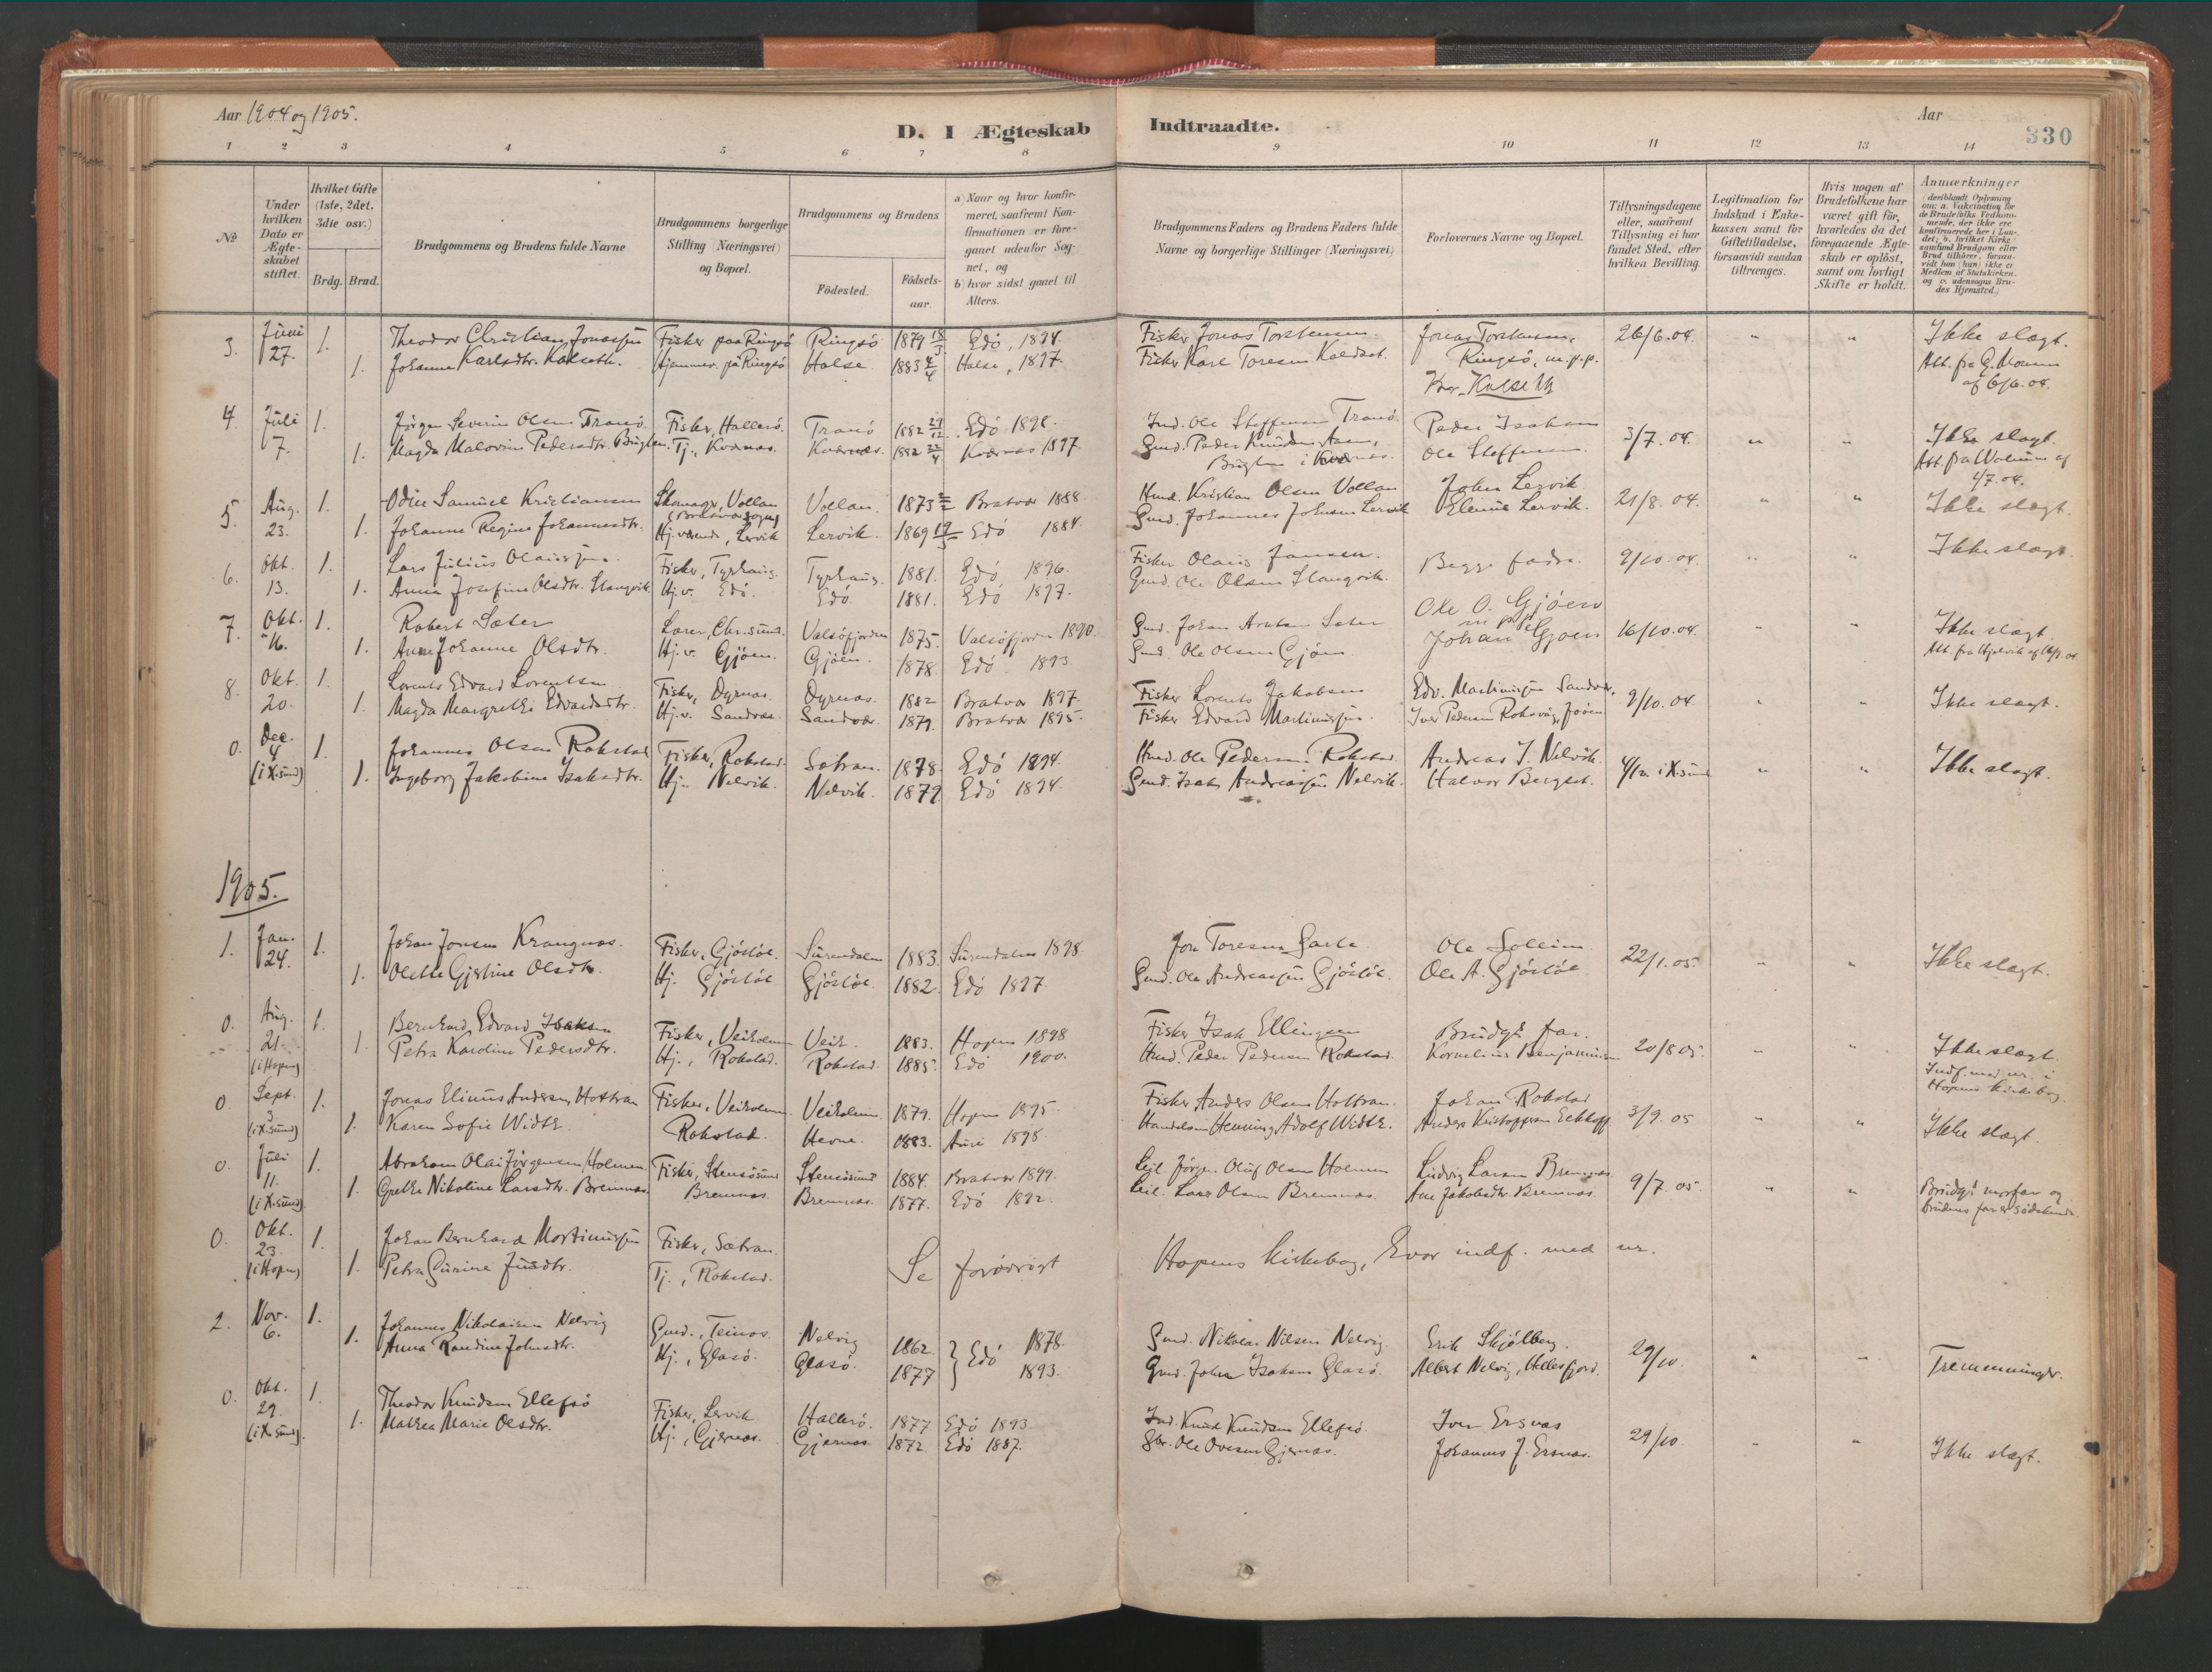 Aar 1904 og 1905.
D. I Ægteskab Indtraadte.
Aar
330
1 2 3 4 5 6 7 8 9 10 11 12 13 14
№
Under hvilken Dato er Ægteskabet stiftet.
Hvilket Gifte (1ste, 2det, 3die osv.)
Brdg. Brud.
Brudgommens og Brudens fulde Navne
Brudgommens borgerlige Stilling (Næringsvei) og Bopæl.
Brudgommens og Brudens
Födested.
Födselsaar.
a) Naar og hvor konfirmeret, saafremt Konfirmationen er foregaaet udenfor Sognet, og
b) hvor sidst gaaet til Alters.
Brudgommens Faders og Brudens Faders fulde Navne og borgerlige Stillinger (Næringsvei)
Forlovernes Navne og Bopæl.
Tillysningsdagene eller, saafremt Tillysning ei har fundet Sted, efter hvilken Bevilling.
Legitimation for Indskud i Enkekassen samt for Giftetilladelse, forsaavidt saadan tiltrænges.
Hvis nogen af Brudefolkene har været gift för, hvorledes da det foregaaende Ægteskab er oplöst, samt om lovligt Skifte er holdt.
Anmærkninger (deriblandt Oplysning om: a. Vakcination for de Brudefolks Vedkommende, der ikke ere konfirmerede her i Landet; b. hvilket Kirkesamfund Brudgom eller Brud tilhörer, forsaavidt han (hun) ikke er Medlem af Statskirken, og c. udensogns Brudes Hjemsted.)
3. Juni 27. 1. Theodor Christian Jonassen Fisker paa Ringsö Ringsö 1879 18/3 Edö, 1894. Fisker Jonas Torstensen Jonas Torstensen, 26/6.04. " " Ikke slægt.
1. Johanne Karlsdtr. Kalseth. Hjemmev. på Ringsö Halse 1883 4/4 Halse, 1897. Fisker Karl Toresen Ringsö, m.p.p. Att. fra
af 6/6.04.
4. Juli 7. 1. Jørgen Severin Olsen Tranö Fisker, Hallersö. Tranö 1882 29/12 Edö 1898. Ind. Ole Steffensen Tranö Peder Isaksen 3/7.04. " " Ikke slægt.
1. Magda Malovine Pedersdtr. Tj., Kvernes. Kvernes. 1882 22/4 Kvernes 1897. Gmd. Peder Knudsen Ole Steffensen Att. fra
i Kvernes. 1/7.04.
5. Aug. 23. 1. Odin Samuel Kristiansen Skomager, Vollan Vollan. 1873 Bratvær 1888 Husm. Kristian Olsen Vollan John Lervik 21/8.04. " " Ikke slægt.
(Bratvær sogn)
1. Johanne Regine Johannesdtr. Hj.værende, Lervik Lervik. 1869 Edö 1884. Gmd. Johannes Johnsen Lervik Elenius Lervik.
6. Okt. 13. 1. Lars Julius Olaussen Fisker, Tyrhaug. Tyrhaug. 1881. Edö 1896. Fisker Olaus Jansen. Begge fædre 9/10.04. " " Ikke slægt.
1. Anna Josefine Olsdtr. Stangvik Hj.v. Edö. Edö 1881. Edö 1897. Gmd. Ole Olsen Stangvik.
7. Okt. 16. 1. Robert Sæter Lærer, Chr.sund. Valsöfjorden 1875. Valsöfjorden 1890. Gmd. Johan Sæter Ole O. Gjöen 16/10.04. " " Ikke slægt.
1. Anne Johanne Olsdtr. Hj.v. Gjöen. Gjöen. 1878. Edö 1893. Gmd. Ole Olsen Gjöen Johan Gjöen
8. Okt. 20. 1. Lorents Edvard Lorentsen Fisker, Dyrnæs. Dyrnæs. 1882 Bratvær 1897. Fisker Lorents Jakobsen Edv. Martinussen Sandvær, 9/10.04. " " Ikke slægt.
1. Magda Margrethe Edvardsdtr. Hj.v. Sandvær. Sandvær. 1879. Bratvær 1895. Fisker Edvard Martinussen. Iver Pedersen Rokvåg,
0. Dec. 4 (i X.sund) 1. Johannes Olsen Rokstad Fisker, Rokstad. Sætran. 1878. Edö 1894. Husm. Ole Pedersen Rokstad. Andreas J. Nelvik. 4/12 i X.sund " " Ikke slægt.
1. Ingeborg Jakobine Isaksdtr. Hj. Nelvik. Nelvik. 1879 Edö 1894. Gmd. Isak Andreassen Nelvik. Halvor Berget.
1905.
1. Jan. 24. 1. Johan Jonsen Krangnæs. Fisker, Gjöslöe. Surendalen 1883. Surendalen 1898 Jon Toresen Ole Solem 22/1.05. " " Ikke slægt.
1. Olette Gjertine Olsdtr. Hj. Gjöslöe Gjöslöe. 1882. Edö 1897. Gmd. Ole Andreassen Gjöslöe Ole A. Gjöslöe
0. Aug. 21. (i Hopen) 1. Bernhard Edvard Isaksen Fisker, Veiholmen Veih. 1883. Hopen 1898 Fisker Isak Ellingsen Brudgs far. 20/8 05. " " Ikke slægt.
1. Petra Karoline Pedersdtr. Hj., Rokstad. Rokstad. 1885. Edö 1900. Husm. Peder Pedersen Rokstad. Kornelius Benjaminsen Indf. med nr. i
Hopens kirkebog.
0. Sept. 3. (i X.sund) 1. Jonas Elinus Andersen Hottran Fisker, Veiholmen. Veiholmen. 1879. Hopen 1895 Fisker Anders Olsen Hottran. Johan Rokstad 3/9.05 " " Ikke slægt.
1. Karen Sofie Width. Rokstad. Hevne. 1883. Aure 1898. Handelsm. Henning Adolf Width. Anders Kristoffersen Eckhoff
0. Juli 11. (i X.sund) 1. Abraham Olai Jørgensen Holmen Fisker, Stensösund Stensösund 1884. Bratvær 1899. Leil. Jørgen Oluf Olsen Holmen Ludvig Larsen Bremnes 9/7.05. " " Brudgs morfar og
1. Grethe Nikoline Larsdtr. Bremnes Bremnes. Bremnes. 1877. Edö 1892. Leil. Lars Olsen Bremnes. Ane Jakobsdtr. Bremnes. brudens far er södskende.
0. Okt. 23. (i Hopen) 1. Johan Bernhard Martinussen Fisker, Sætran.
1. Petra Gurine Juudtr. Tj., Rokstad. Se forövrigt Hopens kirkebog, hvor indf. med nr.
2. Nov. 6. 1. Johannes Nikolaisen Nelvig Gmd., Teinæs. Nelvig 1862. } Edö 1878. Gmd. Nikolai Nilsen Nelvig. Erik Skjölberg. 29/10. " " Tremenninger.
1. Anna Randine Johnsdtr. Hj., Glasö. Glasö. 1877 1893. Gmd. John Isaksen Glasö. Albert Nelvig, Hellesfjord.
0. Okt. 29. (i X.sund). 1. Theodor Knudsen Ellefsö Fisker, Lervik Hallersö. 1877 Edö 1893 Ind. Knud Knudsen Ellefsö. Iver Ersnes 29/10. " " Ikke slægt.
1. Mathea Marie Olsdtr. Hj., Gjernes. Gjernes. 1872. Edö 1887. Gbr. Ole Ovesen Gjernes. Johannes J. Ersnes.